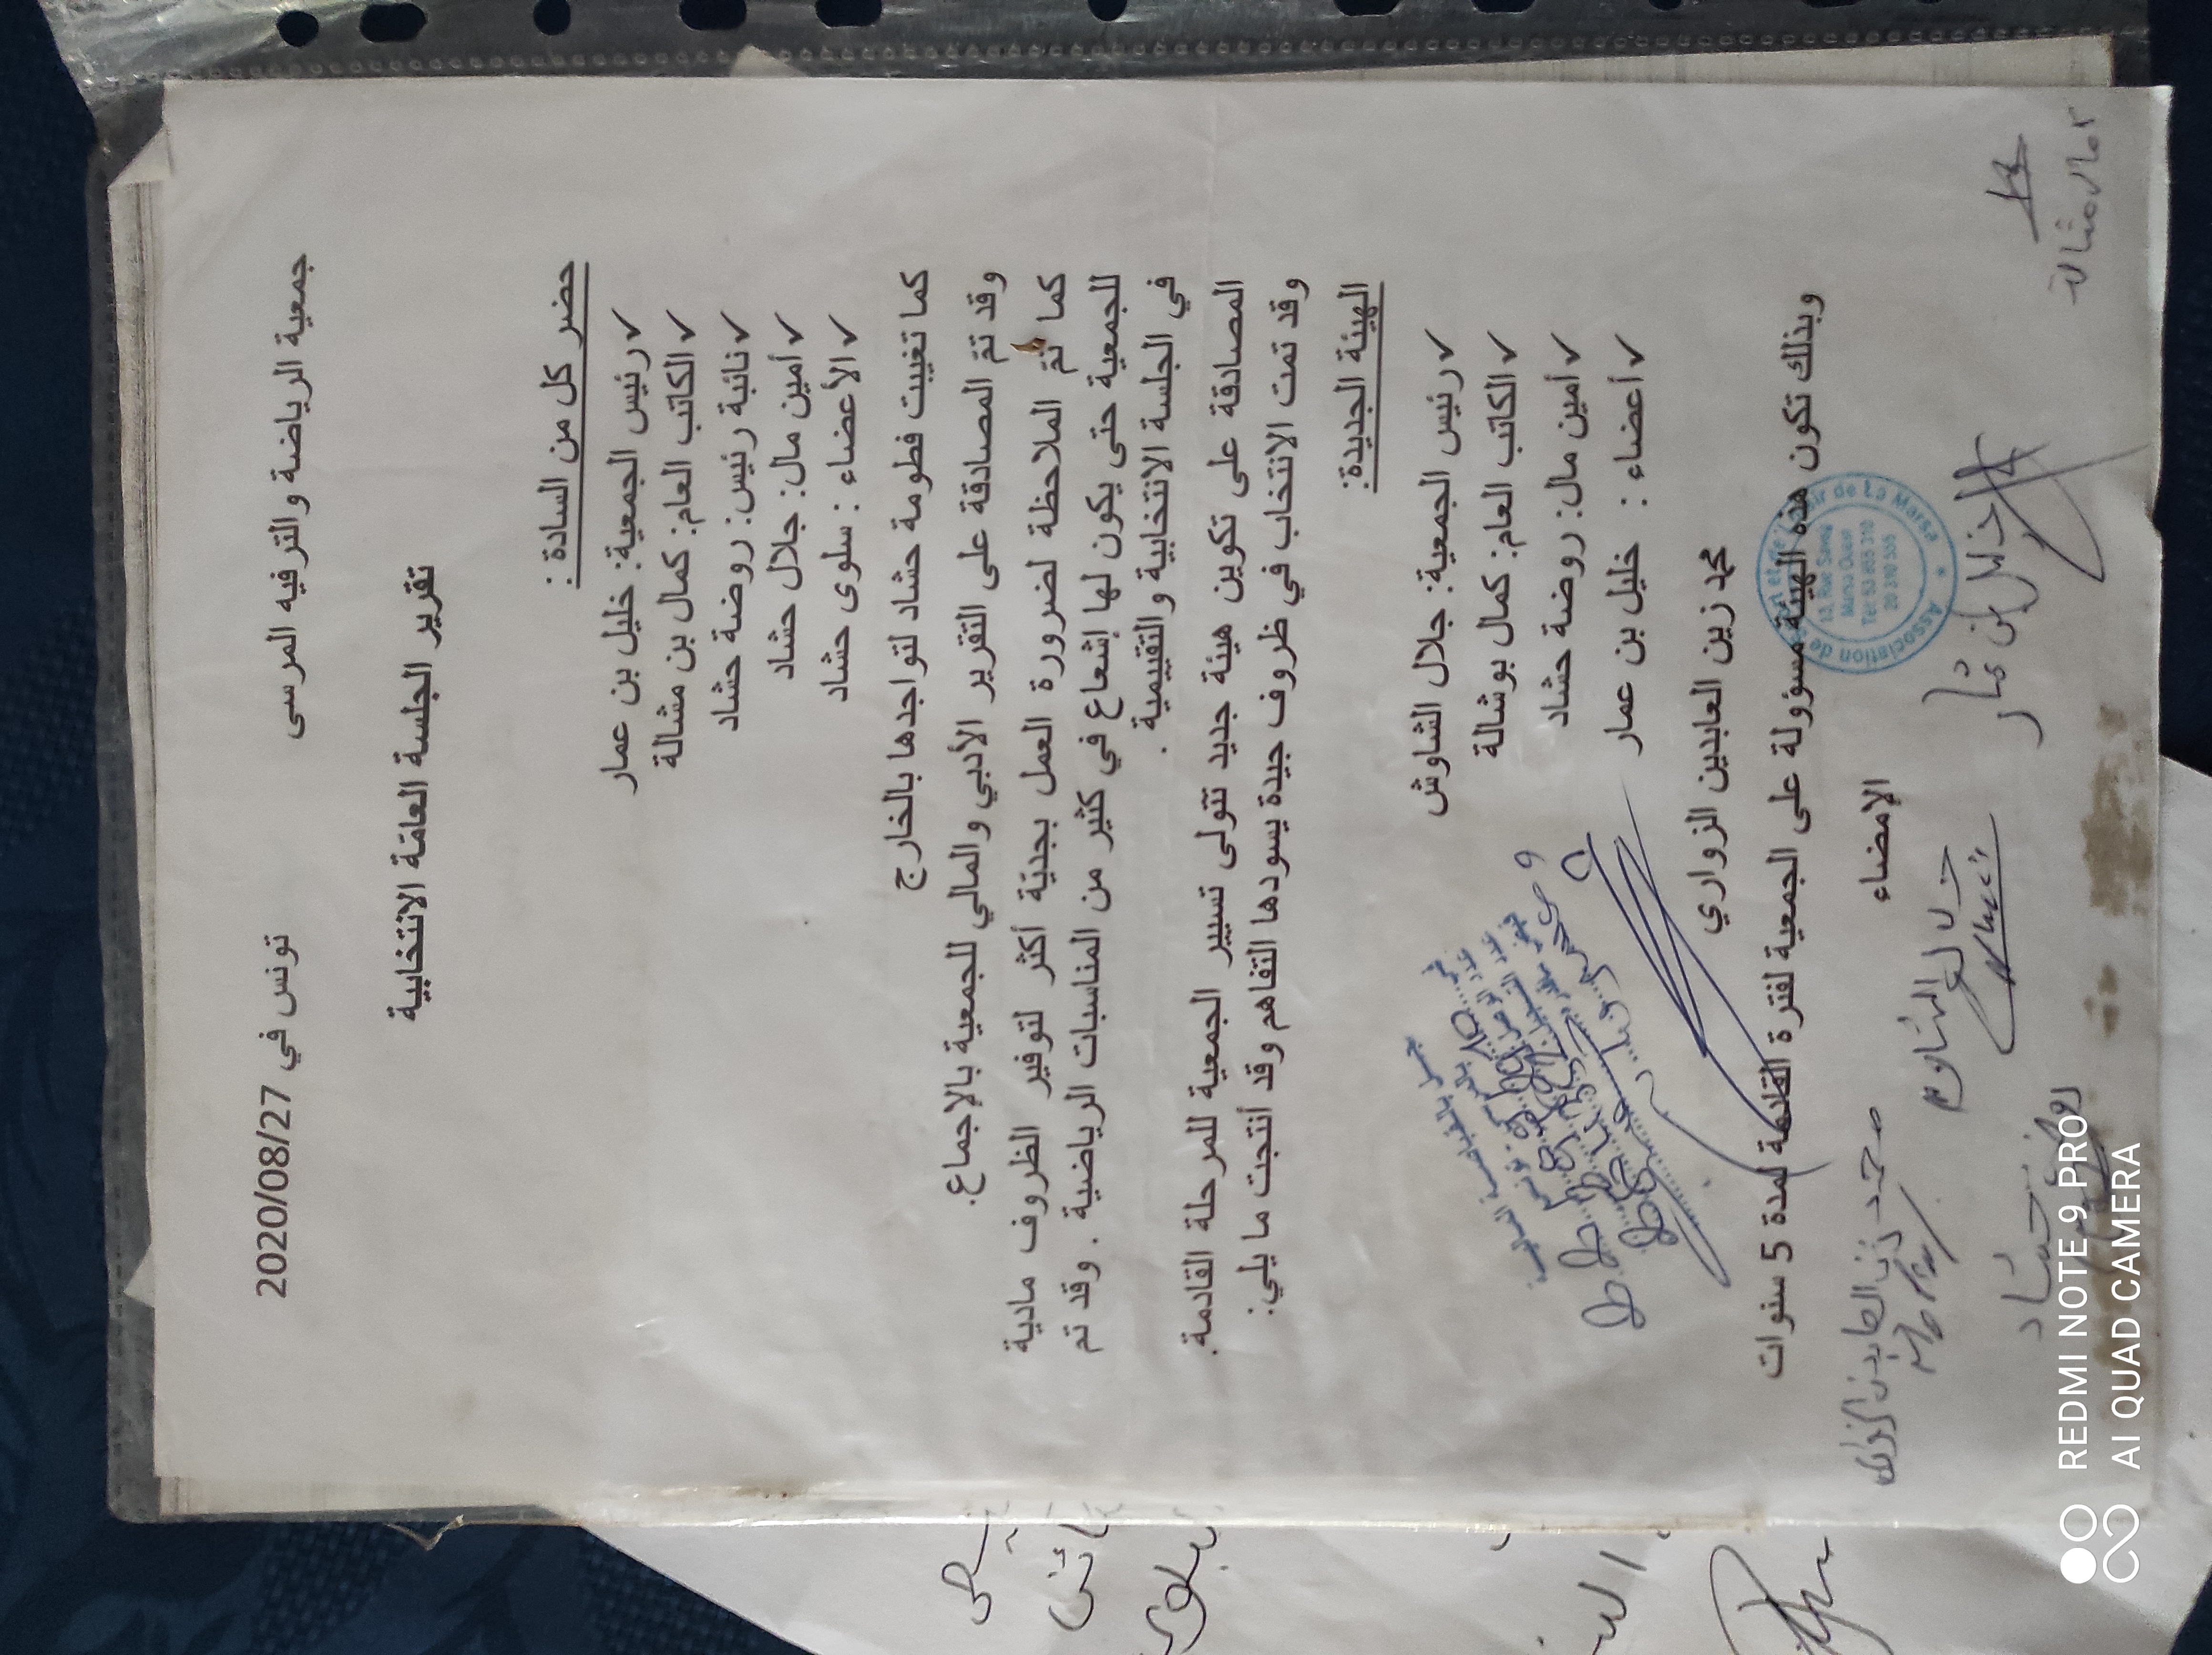 جمعية الرياضة والترفيه المرسى
تونس في 2020/08/27
تقرير الجلسة العامة الانتخابية
حضر كل من السادة :
✓ رئيس الجمعية: خليل بن عمار
✓ الكاتب العام: كمال بن مشالة
✓ نائبة رئيس: روضة حشاد
✓ أمين مال: جلال حشاد
✓ الأعضاء : سلوى حشاد
كما تغيبت فطومة حشاد لتواجدها بالخارج
وقد تمّ المصادقة على التقرير الأدبي والمالي للجمعية بالإجماع.
كما تمّ الملاحظة لضرورة العمل بجديّة أكثر لتوفير الظروف مادية
للجمعية حتى يكون لها إشعاع في كثير من المناسبات الرياضية . وقد تم
في الجلسة الانتخابية والتقييمية .
المصادقة على تكوين هيئة جديد تتولى تسيير الجمعية للمرحلة القادمة.
وقد تمت الانتخاب في ظروف جيدة يسودها التفاهم وقد أنتجت ما يلي:
الهيئة الجديدة:
✓ رئيس الجمعية: جلال الشاوش
✓ الكاتب العام: كمال بوشالة
✓ أمين مال: روضة حشاد
✓ أعضاء : خليل بن عمار
محمد زين العابدين الزواري
وبذلك تكون هذه الهيئة مسؤولة على الجمعية لفترة القادمة لمدة 5 سنوات
الإمضاء
Association de
de La Marsa
Marsa
محمد زين العابدين الزواري
جلال الشاوش
خليل بن عمار
روضة حشاد
REDMI NOTE 9 PRO
AI QUAD CAMERA